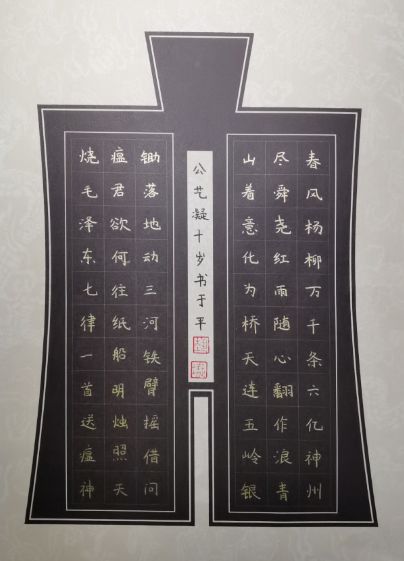 春风杨柳万千条六亿神州
尽舜尧红雨随心翻作浪青
山着意化为桥天连五岭银
锄落地动三河铁臂摇借问
瘟君欲何往纸船明烛照天
烧毛泽东七律一首送瘟神
公艺凝十岁书于平